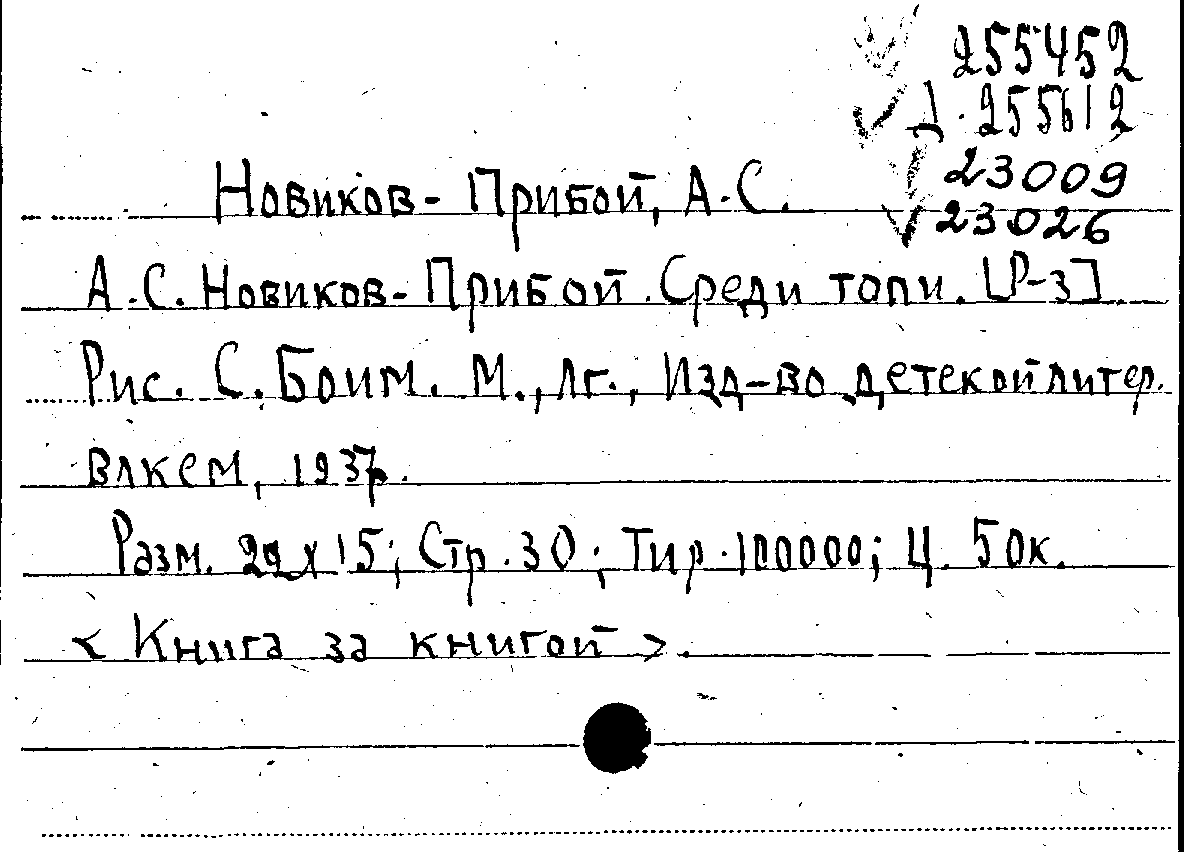 255452
Д. 255612
23009
23026
Новиков-Прибой, А.С.
А.С. Новиков-Прибой. Среди топи. [Р-з]
Рис. С. Боим. М., Лг., Изд-во детской литер.
ВЛКСМ, 1937г.
Разм. 22х15; Стр. 30; Тир. 100000; Ц. 50к.
< Книга за книгой >.